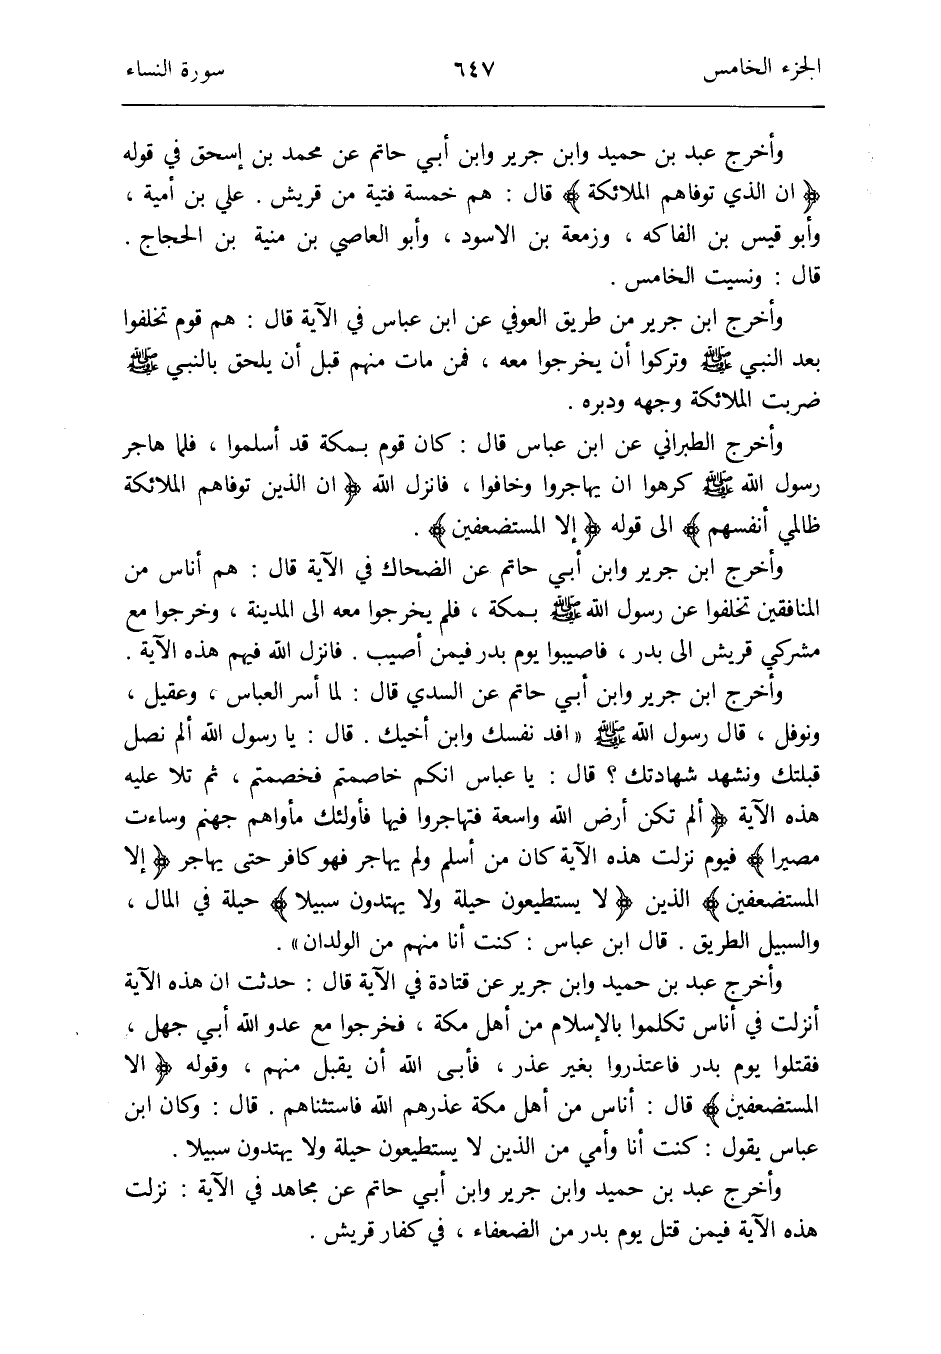 الجزء الخامس ٦٤٧ سورة النساء
وأخرج عبد بن حميد وابن جرير وابن أبي حاتم عن محمد بن إسحق في قوله
﴿ ان الذي توفاهم الملائكة ﴾ قال : هم خمسة فتية من قريش . علي بن أمية ،
وأبو قيس بن الفاكه ، وزمعة بن الاسود ، وأبو العاصي بن منية بن الحجاج .
قال : ونسيت الخامس .
وأخرج ابن جرير من طريق العوفي عن ابن عباس في الآية قال : هم قوم تخلفوا
بعد النبي ﷺ وتركوا أن يخرجوا معه ، فمن مات منهم قبل أن يلحق بالنبي ﷺ
ضربت الملائكة وجهه ودبره .
وأخرج الطبراني عن ابن عباس قال : كان قوم بمكة قد أسلموا ، فلما هاجر
رسول الله ﷺ كرهوا ان يهاجروا وخافوا ، فانزل الله ﴿ ان الذين توفاهم الملائكة
ظالمي أنفسهم ﴾ الى قوله ﴿ إلا المستضعفين ﴾ .
وأخرج ابن جرير وابن أبي حاتم عن الضحاك في الآية قال : هم أناس من
المنافقين تخلفوا عن رسول الله ﷺ بمكة ، فلم يخرجوا معه الى المدينة ، وخرجوا مع
مشركي قريش الى بدر ، فاصيبوا يوم بدر فيمن أصيب . فانزل الله فيهم هذه الآية .
وأخرج ابن جرير وابن أبي حاتم عن السدي قال : لما أسر العباس ، وعقيل ،
ونوفل ، قال رسول الله ﷺ « افد نفسك وابن أخيك . قال : يا رسول الله ألم نصل
قبلتك ونشهد شهادتك ؟ قال : يا عباس انكم خاصمتم فخصمتم ، ثم تلا عليه
هذه الآية ﴿ ألم تكن أرض الله واسعة فتهاجروا فيها فأولئك مأواهم جهنم وساءت
مصيرا ﴾ فيوم نزلت هذه الآية كان من أسلم ولم يهاجر فهو كافر حتى يهاجر ﴿ إلا
المستضعفين ﴾ الذين ﴿ لا يستطيعون حيلة ولا يهتدون سبيلا ﴾ حيلة في المال ،
والسبيل الطريق . قال ابن عباس : كنت أنا منهم من الولدان » .
وأخرج عبد بن حميد وابن جرير عن قتادة في الآية قال : حدثت ان هذه الآية
أنزلت في أناس تكلموا بالإسلام من أهل مكة ، فخرجوا مع عدو الله أبي جهل ،
فقتلوا يوم بدر فاعتذروا بغير عذر ، فأبى الله أن يقبل منهم ، وقوله ﴿ الا
المستضعفين ﴾ قال : أناس من أهل مكة عذرهم الله فاستثناهم . قال : وكان ابن
عباس يقول : كنت أنا وأمي من الذين لا يستطيعون حيلة ولا يهتدون سبيلا .
وأخرج عبد بن حميد وابن جرير وابن أبي حاتم عن مجاهد في الآية : نزلت
هذه الآية فيمن قتل يوم بدر من الضعفاء ، في كفار قريش .